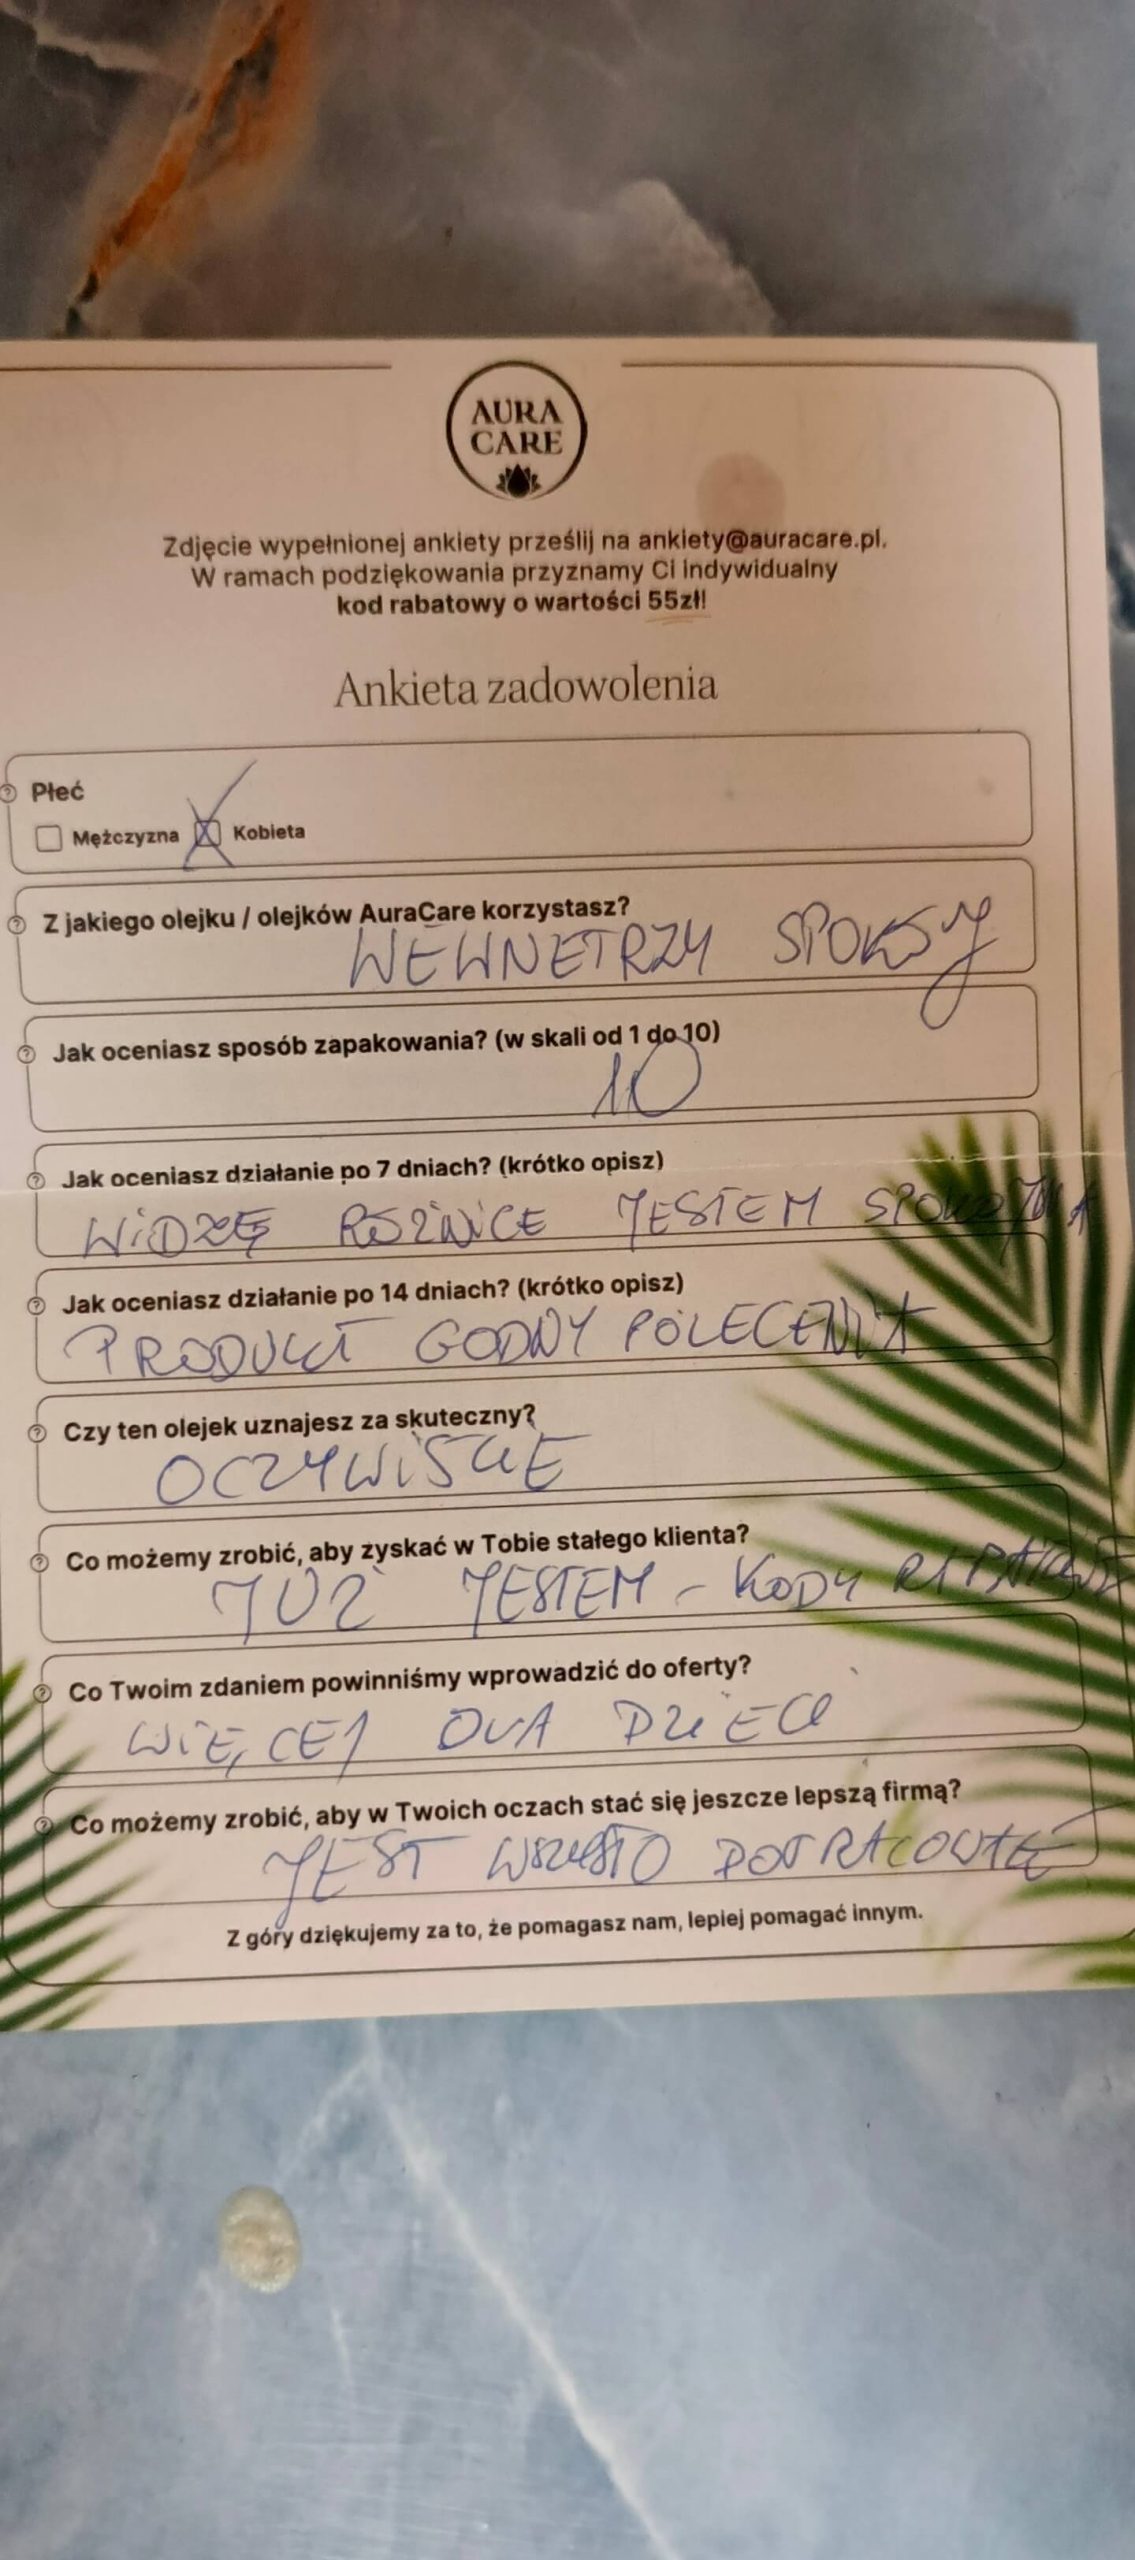 AURA
CARE
Zdjęcie wypełnionej ankiety prześlij na ankiety@auracare.pl.
W ramach podziękowania przyznamy Ci indywidualny
kod rabatowy o wartości 55zł!
Ankieta zadowolenia
Płeć
Mężczyzna X Kobieta
Z jakiego olejku / olejków AuraCare korzystasz?
WEWNETRZY SPOKÓJ
Jak oceniasz sposób zapakowania? (w skali od 1 do 10)
10
Jak oceniasz działanie po 7 dniach? (krótko opisz)
WiDZĘ RÓŻNiCE JESTEM SPOKOJNA
Jak oceniasz działanie po 14 dniach? (krótko opisz)
PRODUKT GODNY POLECENIA
Czy ten olejek uznajesz za skuteczny?
OCZYWIŚCIE
Co możemy zrobić, aby zyskać w Tobie stałego klienta?
JUŻ JESTEM - KODY RABATOWE
Co Twoim zdaniem powinniśmy wprowadzić do oferty?
WIĘCEJ DLA DZIECI
Co możemy zrobić, aby w Twoich oczach stać się jeszcze lepszą firmą?
JEST WSZYSTKO
Z góry dziękujemy za to, że pomagasz nam, lepiej pomagać innym.